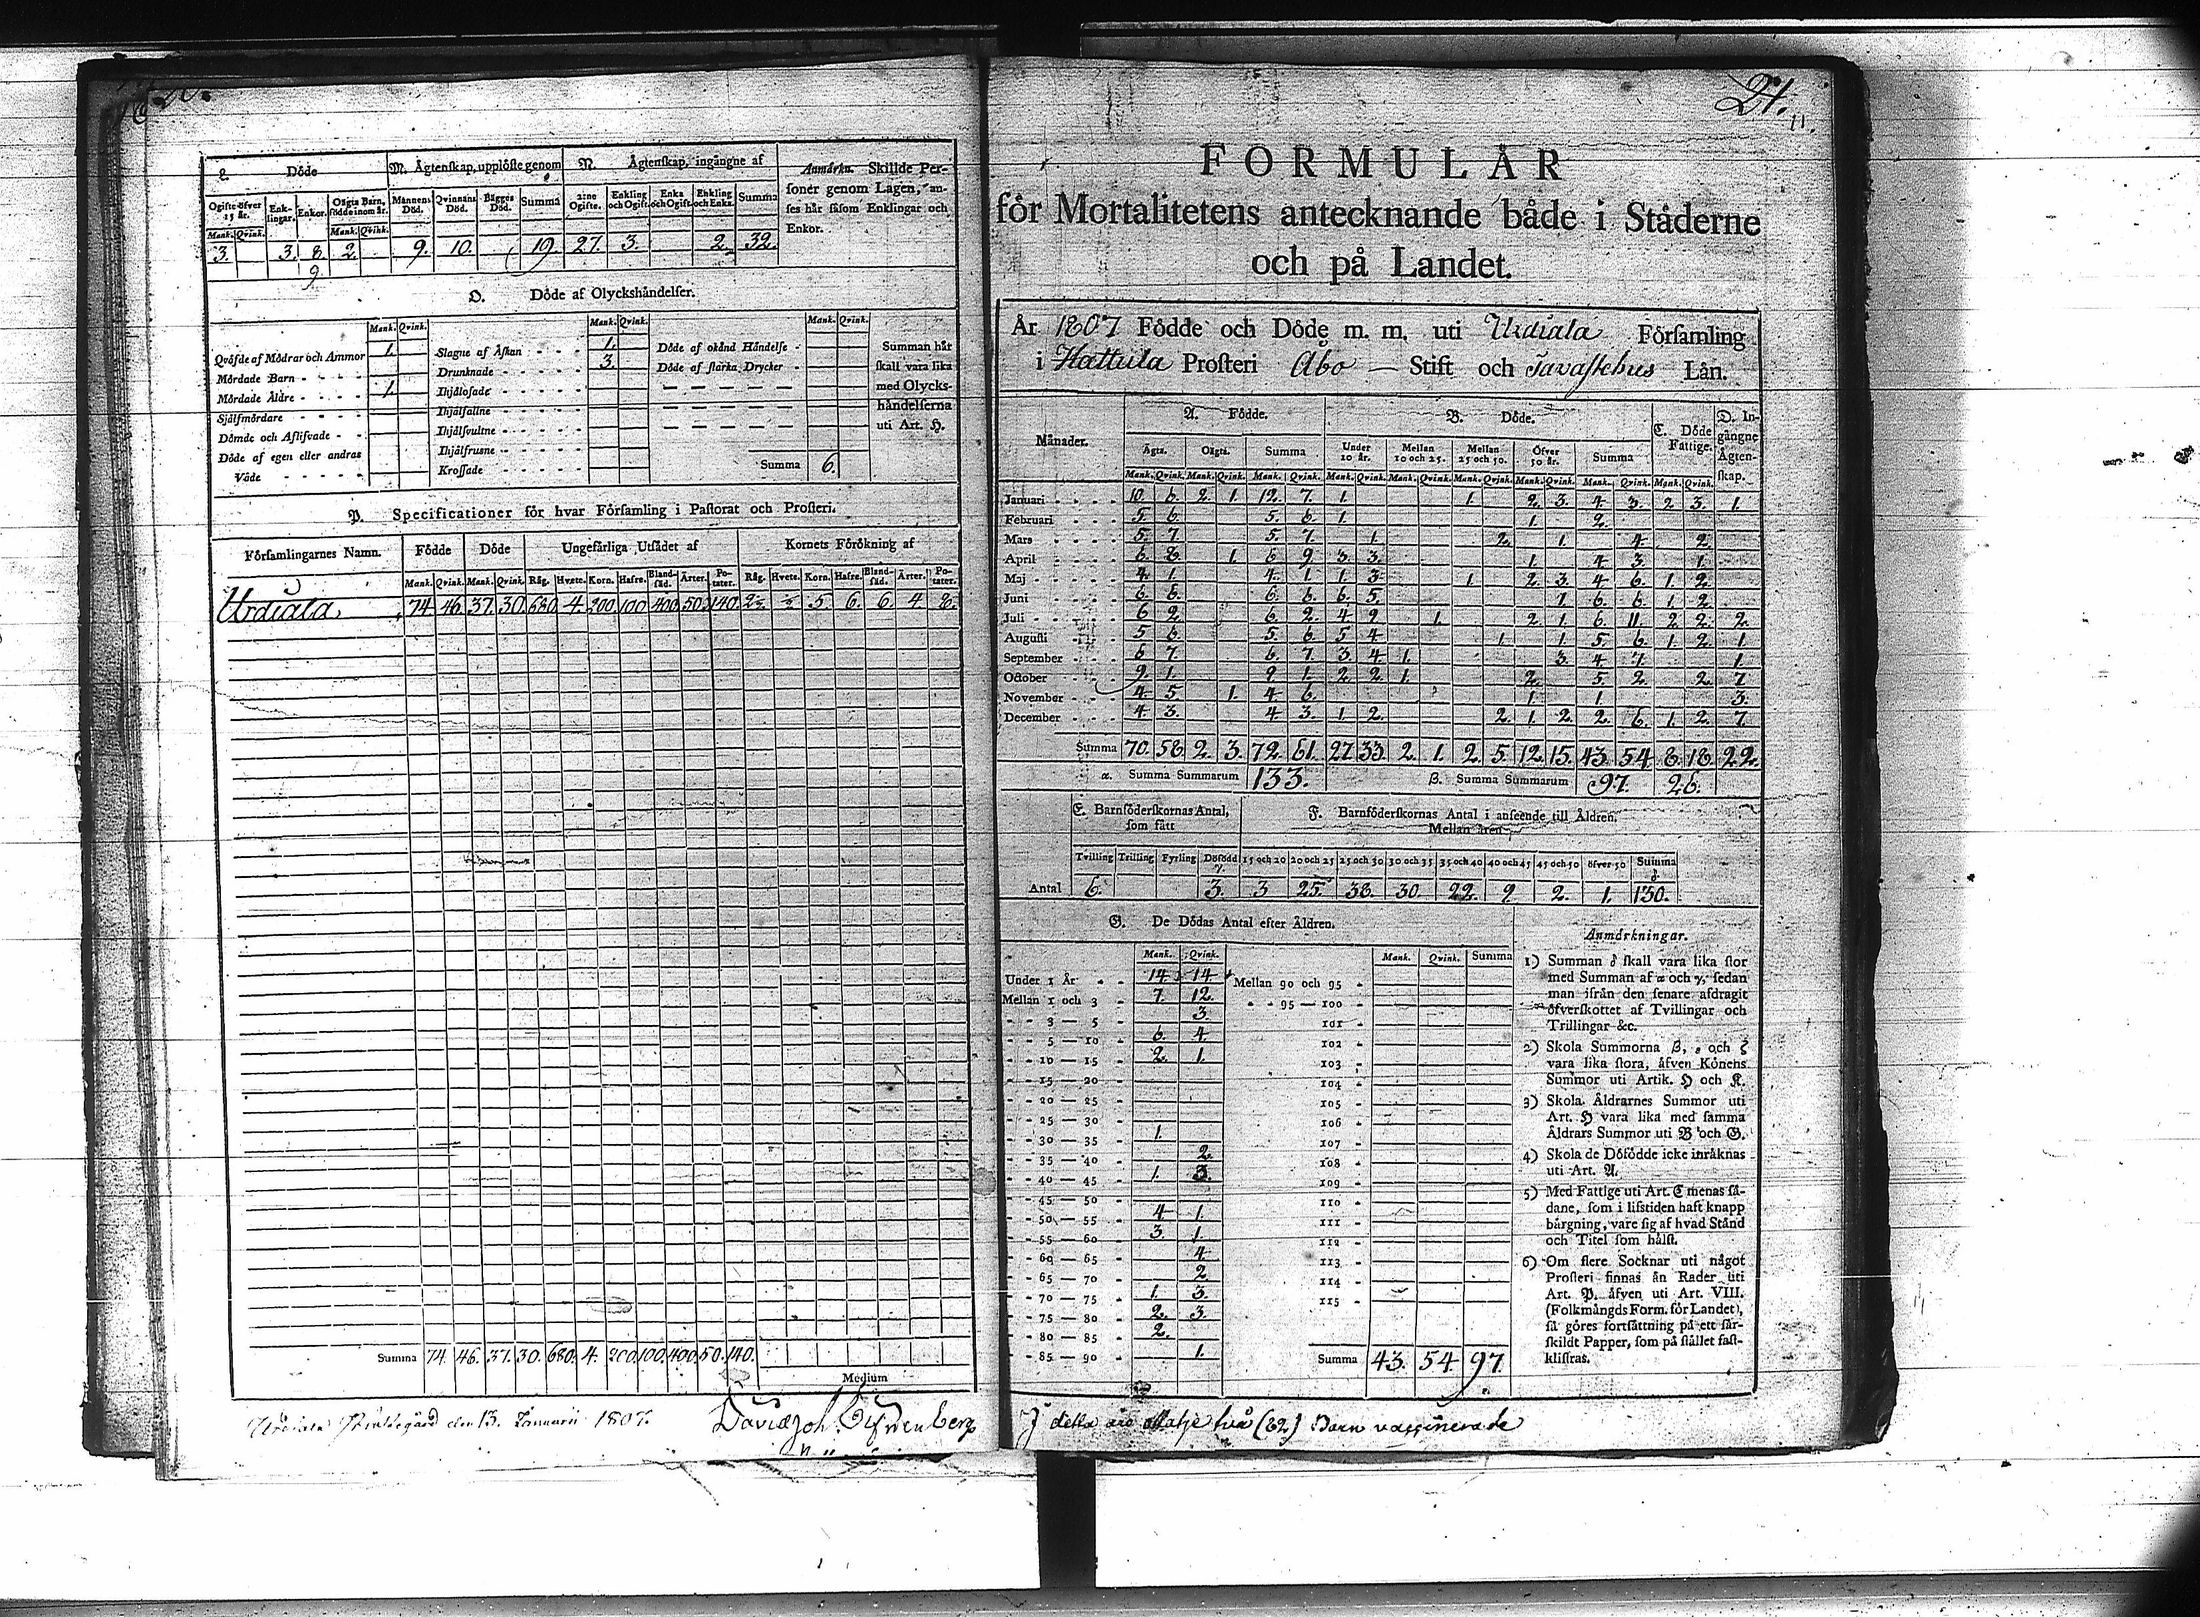 L. Döde
M. Ägtenskap, upplöste genom
N. Ägtenskap, ingångne af
Anmärkn. Skillde Per-
soner genom Lagen, an-
ses här såsom Enklingar och
Enkor.
Ogifte öfver 15 år. Enk-lingar. Enkor. Oägta Barn, födde inom år. Mannens Död. Qvinnans Död. Bägges Död. Summa 2:ne Ogifte. Enkling och Ogift. Enka och Ogift. Enkling och Enka. Summa
Mank. Qvink. Mank. Qvink.
3. 3. 8. 2. 9. 10. 19. 27. 3. 2. 32.
9.
O. Döde af Olyckshändelser.
Mank. Qvink. Mank. Qvink. Mank. Qvink.
Qväfde af Mödrar och Ammor 1. Slagne af Åskan 1. Döde af okänd Händelse Summan här
Mördade Barn Drunknade 3. Döde af starka Drycker skall vara lika
Mördade Äldre 1. Ihjälosade med Olycks-
Självmördare Ihjälfallne händelserna
Dömde och Aflifvade Ihjälsvultne uti Art. H.
Döde af egen eller andras Ihjälfrusne
Våde Krossade Summa 6.
P. Specificationer för hvar Församling i Pastorat och Prosteri.
Församlingarnes Namn. Födde Döde Ungefärliga Utsädet af Kornets Förökning af
Mank. Qvink. Mank. Qvink. Råg. Hvete. Korn. Hafre. Bland-säd. Ärter. Po-tater. Råg. Hvete. Korn. Hafre. Bland-säd. Ärter. Po-tater.
Urdiala 74. 46. 37. 30. 680. 4. 200. 100. 400. 50. 140. 5. 6. 6. 4. 8.
Summa 74. 46. 37. 30. 680. 4. 200. 100. 400. 50. 140.
Medium
Urdiala den 13. Januarii 1807.
David Joh.
24.
11.
FORMULÄR
för Mortalitetens antecknande både i Städerne
och på Landet.
År 1807 Födde och Döde m. m. uti Urdiala Församling
i Hattula Prosteri Åbo Stift och Tavastehus Län.
Månader. A. Födde. B. Döde. C. Döde Fattige. D. In-gångne Ägten-skap.
Ägta. Oägta. Summa Under 10 år. Mellan 10 och 25. Mellan 25 och 50. Öfver 50 år. Summa
Mank. Qvink. Mank. Qvink. Mank. Qvink. Mank. Qvink. Mank. Qvink. Mank. Qvink. Mank. Qvink. Mank. Qvink. Mank. Qvink.
Januari 10. 6. 2. 1. 12. 7. 1. 1. 2. 3. 4. 3. 2. 3. 1.
Februari 5. 6. 5. 6. 1. 1. 2.
Mars 5. 7. 5. 7. 1. 2. 1. 4. 2.
April 6. 8. 1. 6. 9. 3. 3. 1. 4. 3. 1.
Maj 4. 1. 4. 1. 1. 3. 1. 2. 3. 4. 6. 1. 2.
Juni 6. 6. 6. 6. 6. 5. 1. 6. 6. 1. 2.
Juli 6. 2. 6. 2. 4. 9. 1. 2. 1. 6. 11. 2. 2. 2.
Augusti 5. 6. 5. 6. 5. 4. 1. 1. 5. 6. 1. 2. 1.
September 6. 7. 6. 7. 3. 4. 1. 3. 4. 7. 1.
October 9. 1. 9. 1. 2. 2. 1. 2. 5. 2. 2. 7.
November 4. 5. 1. 4. 6. 1. 1. 3.
December 4. 3. 4. 3. 1. 2. 2. 1. 2. 2. 6. 1. 2. 7.
Summa 70. 58. 2. 3. 72. 61. 27. 33. 2. 1. 2. 5. 12. 15. 43. 54. 8. 18. 22.
α. Summa Summarum 133. β. Summa Summarum 97. 26.
E. Barnföderskornas Antal, som fått
F. Barnföderskornas Antal i anseende till Åldren.
Mellan åren
Tvilling Trilling Fyrling Dödfödd 15 och 20 20 och 25 25 och 30 30 och 35 35 och 40 40 och 45 45 och 50 öfver 50 Summa
Antal 6. 3. 3 25. 38. 30. 22. 9 2. 1. 130.
G. De Dödas Antal efter Åldren.
Mank. Qvink. Mank. Qvink. Summa
Under 1 År 14. 14 Mellan 90 och 95
Mellan 1 och 3 7. 12. 95 — 100
3 — 5 3. 101
5 — 10 6. 4. 102
10 — 15 2. 1. 103
15 — 20 104
20 — 25 105
25 — 30 106
30 — 35 1. 107
35 — 40 2. 108
40 — 45 1. 3. 109
45 — 50 110
50 — 55 4. 1. 111
55 — 60 3. 1. 112
60 — 65 4. 113
65 — 70 2. 114
70 — 75 1. 3. 115
75 — 80 2. 3.
80 — 85 2.
85 — 90 1. Summa 43. 54. 97.
Anmärkningar.
1) Summan δ skall vara lika stor
med Summan af α och γ, sedan
man ifrån den senare afdragit
öfverskottet af Tvillingar och
Trillingar &c.
2) Skola Summorna β, ε och ζ
vara lika stora, äfven Könens
Summor uti Artik. H och K.
3) Skola Åldrarnes Summor uti
Art. H vara lika med samma
Åldrars Summor uti B och G.
4) Skola de Döfödde icke inräknas
uti Art. A.
5) Med Fattige uti Art. C menas så-
dane, som i lifstiden haft knapp
bärgning, vare sig af hvad Stånd
och Titel som hälst.
6) Om flere Socknar uti något
Prosteri finnas än Rader uti
Art. P. äfven uti Art. VIII.
(Folkmängds Form. för Landet),
så göres fortsättning på ett sär-
skildt Papper, som på stället fast-
klistras.
I detta äro två (82) Barn vaccinerade